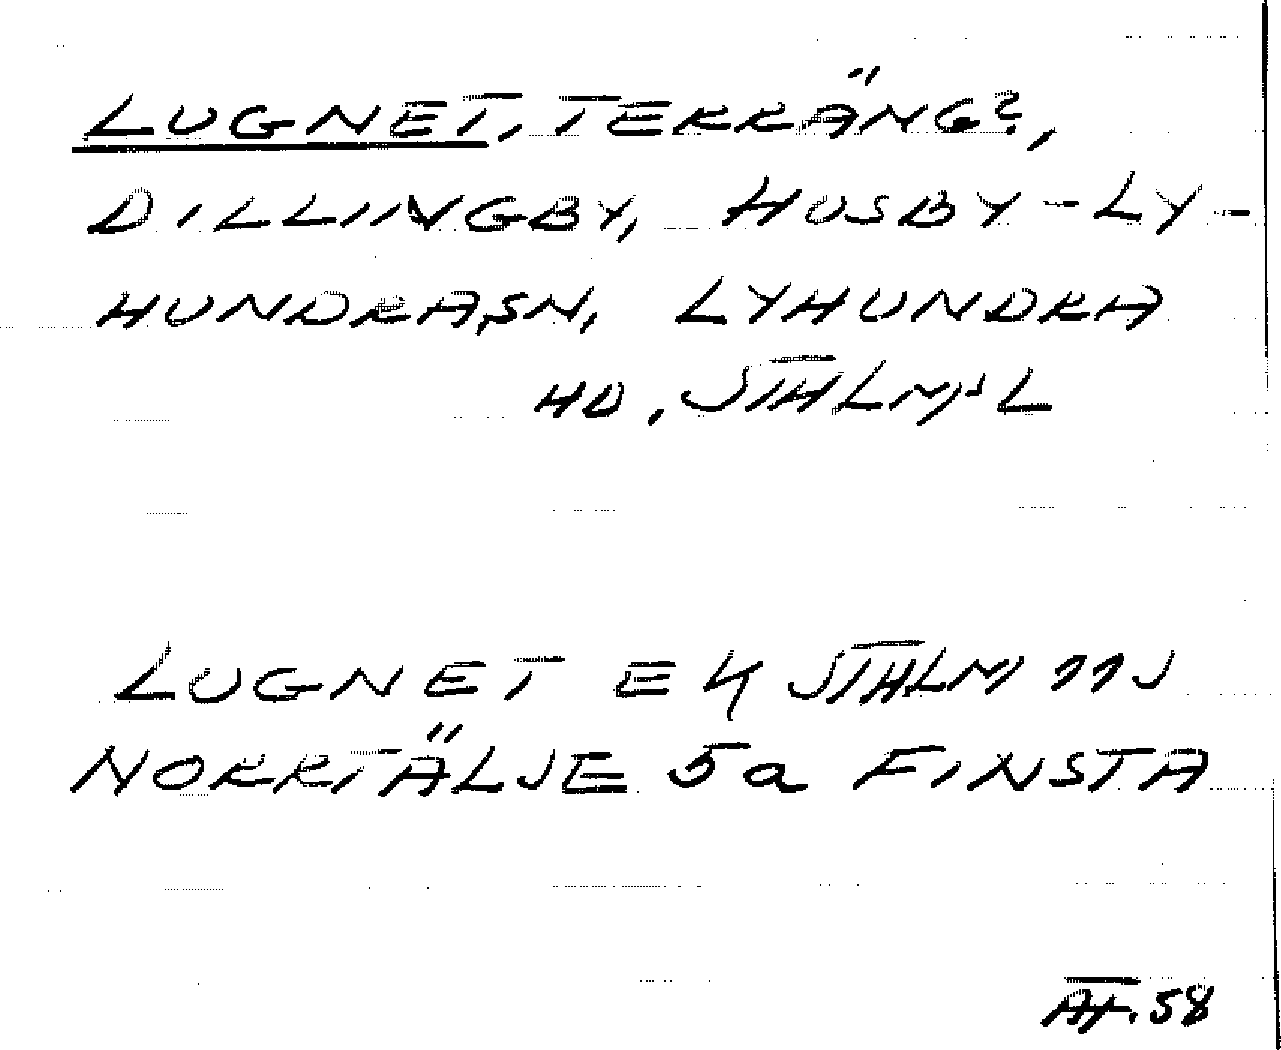 LUGNET, TERRÄNG?,
DILLINGBY, HUSBY-LY-
HUNDRA SN, LYHUNDRA
HD, STHLMS L
LUGNET EK STHLM 11J
NORRTÄLJE 5a FINSTA
58